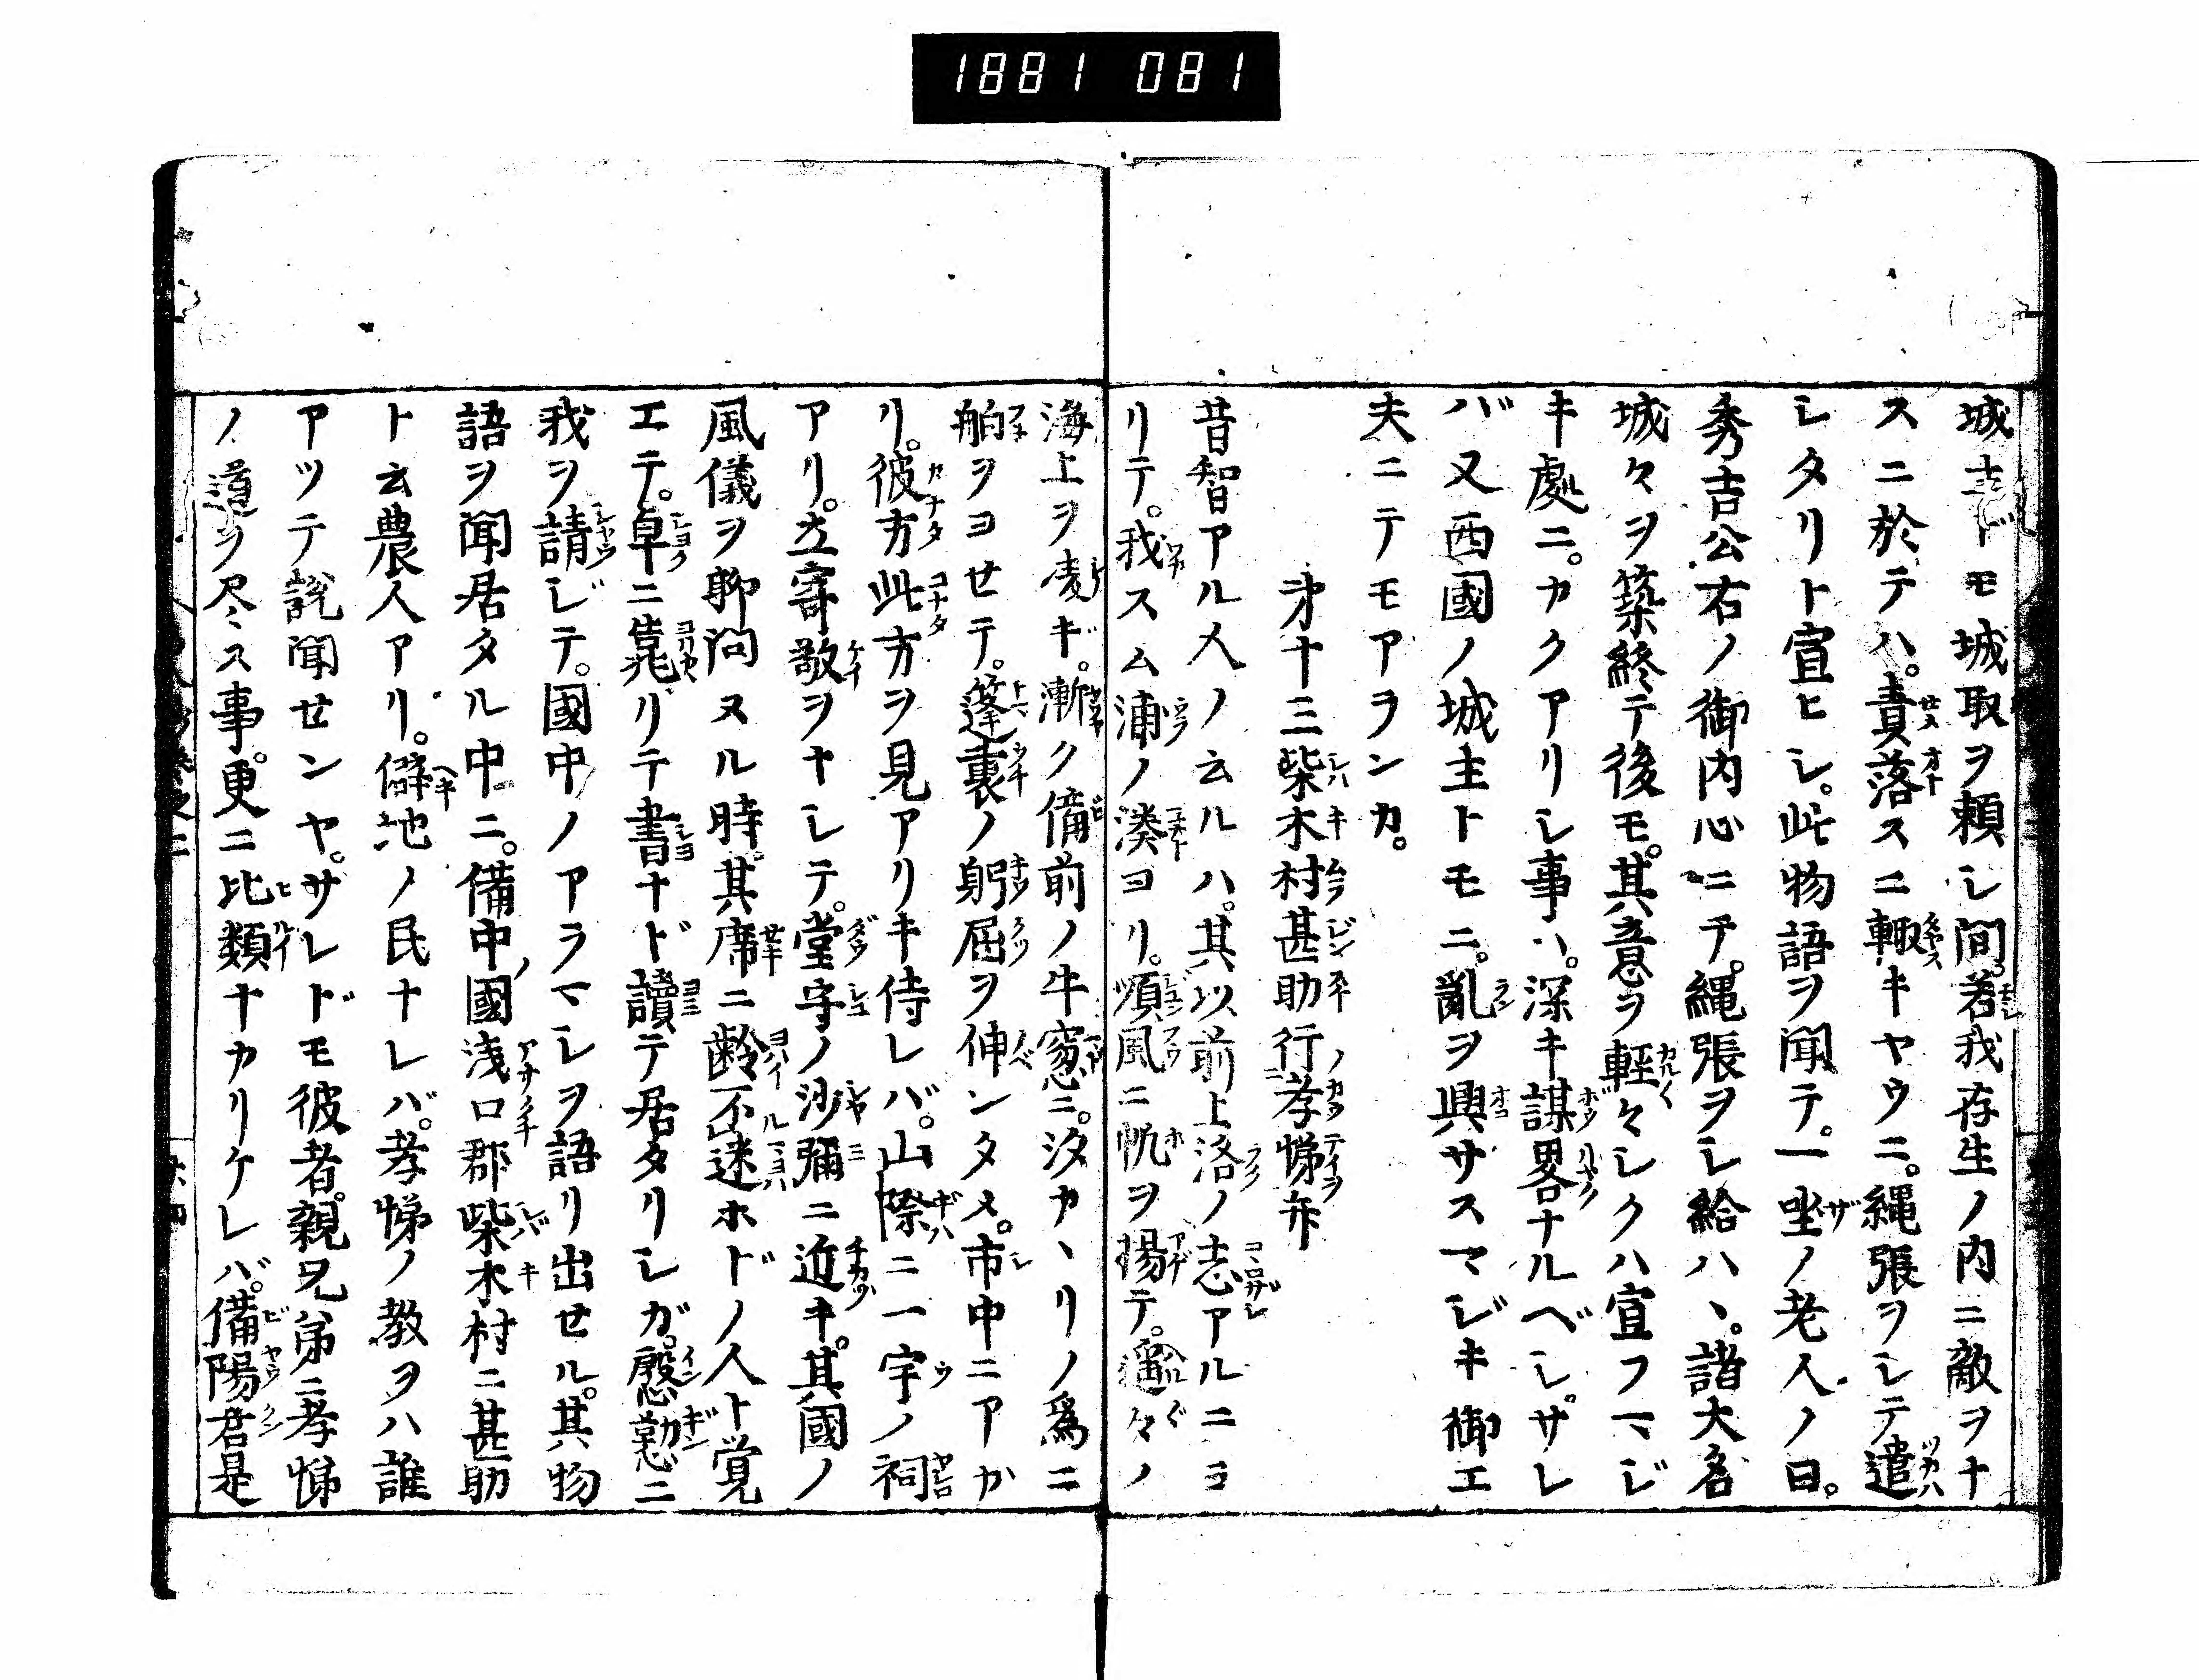 1881 081
城主ドモ城取ヲ頼レシ間。若我存生ノ内ニ敵ヲナ
スニ於テハ。責落スニ輙キヤウニ。縄張ヲシテ遣
シタリト宣ヒシ。此物語ヲ聞テ。一坐ノ老人ノ曰。
秀吉公右ノ御内心ニテ。縄張ヲシ給ハヽ。諸大名
城々ヲ築終テ後モ。其意ヲ輕々シクハ宣フマジ
キ處ニ。カクアリシ事ハ。深キ謀畧ナルベシ。サレ
バ又西國ノ城主トモニ。亂ヲ興サスマジキ御工
夫ニテモアランカ。
㐧十三柴木村甚助行孝悌㡀
昔智アル人ノ云ルハ。其以前上洛ノ志アルニヨ
リテ。我スム浦ノ湊ヨリ。順風ニ帆ヲ揚テ。遥々ノ
海上ヲ凌ギ。漸ク備前ノ牛窓ニ。汐カヽリノ爲ニ
舶ヲヨセテ。篷裏ノ躬屈ヲ伸ンタメ。市中ニアカ
リ。彼方此方ヲ見アリキ侍レバ。山際ニ一宇ノ祠
アリ。立寄敬ヲナシテ。堂守ノ沙彌ニ近キ。其國ノ
風儀ヲ聊問ヌル時。其席ニ齡不迷ホドノ人ト覚
エテ。卓ニ靠リテ書ナド讀テ居タリシガ。慇懃ニ
我ヲ請ジテ。國中ノアラマシヲ語リ出セル。其物
語ヲ聞居タル中ニ。備中ノ國浅口郡柴木村ニ甚助
ト云農人アリ。僻地ノ民ナレバ。孝悌ノ教ヲハ誰
アツテ説聞センヤ。サレドモ彼者。親兄弟ニ孝悌
ノ道ヲ尽ス事。更ニ比類ナカリケレバ。備陽君是